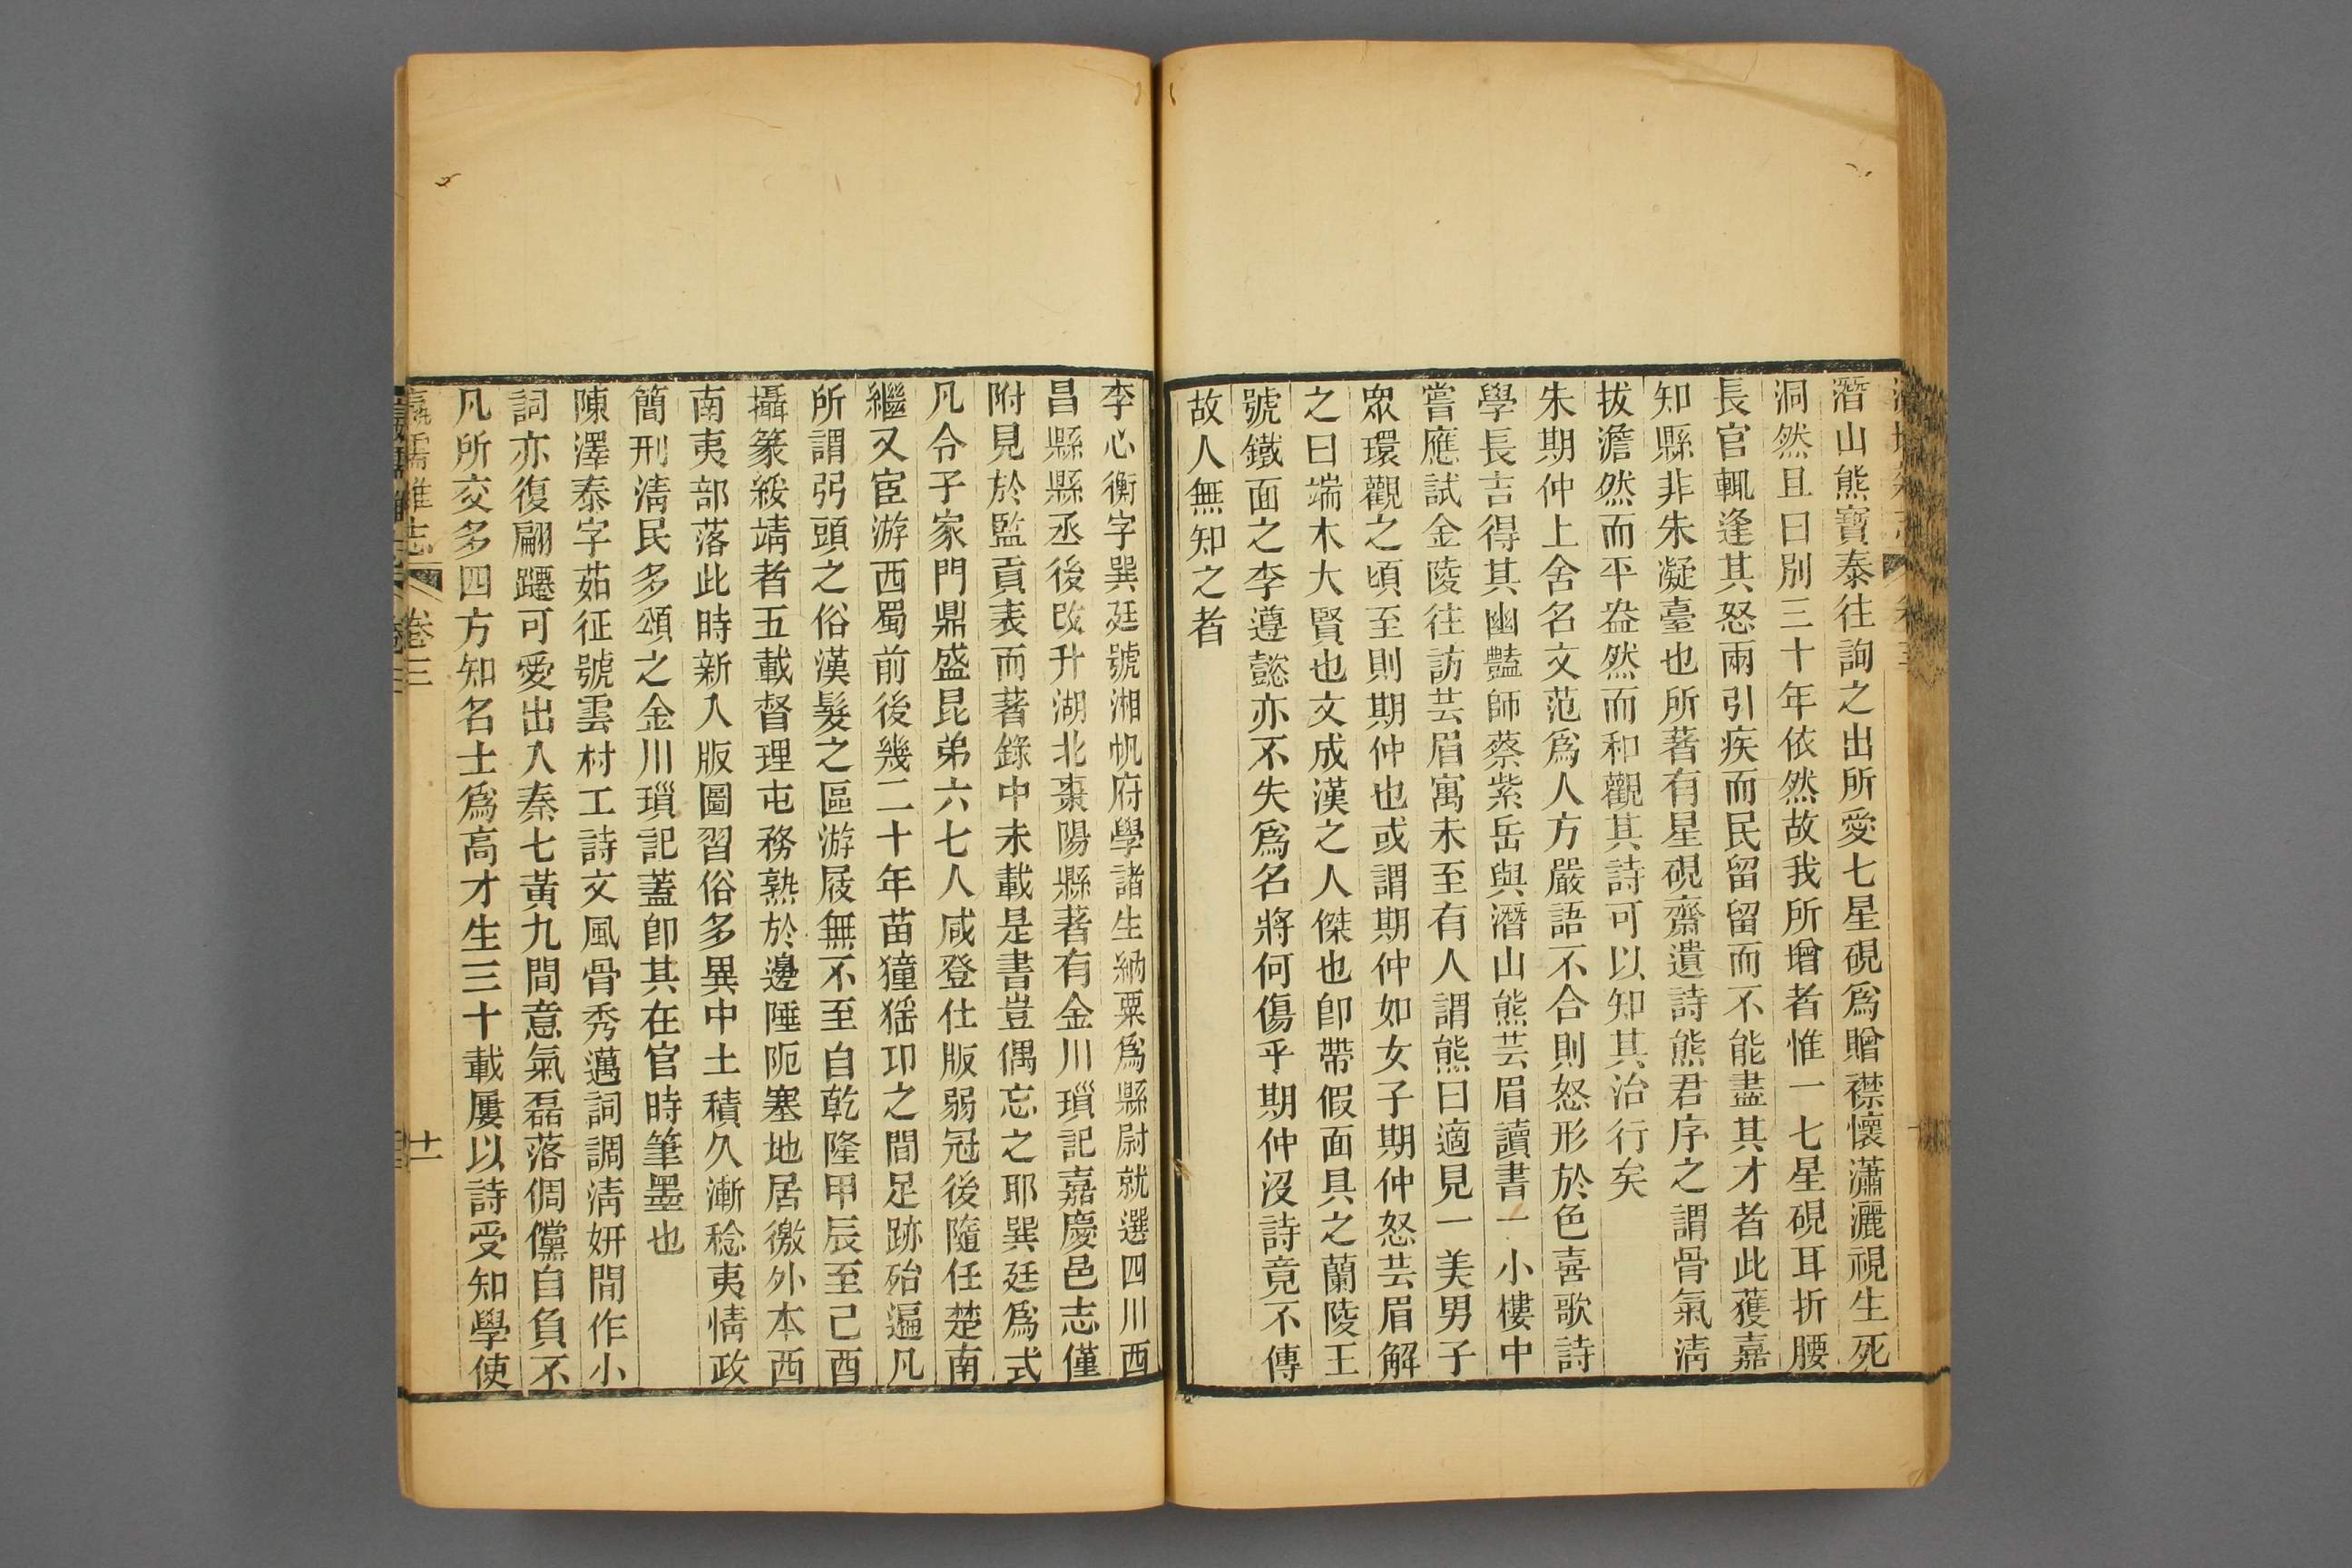 潛山熊寶泰往詢之出所愛七星硯爲贈襟懷瀟灑視生死
洞然且曰別三十年依然故我所增者惟一七星硯耳折腰
長官輒逢其怒兩引疾而民留留而不能盡其才者此獲嘉
知縣非朱凝臺也所著有星硯齋遺詩熊君序之謂骨氣淸
拔澹然而平盎然而和觀其詩可以知其治行矣
朱期仲上舍名文范爲人方嚴語不合則怒形於色喜歌詩
學長吉得其幽豔師蔡紫岳與潛山熊芸眉讀書一小樓中
嘗應試金陵往訪芸眉寓未至有人謂熊曰適見一美男子
眾環觀之頃至則期仲也或謂期仲如女子期仲怒芸眉解
之曰端木大賢也文成漢之人傑也卽帶假面具之蘭陵王
號鐵面之李遵懿亦不失爲名將何傷乎期仲沒詩竟不傳
故人無知之者
李心衡字巽廷號湘帆府學諸生納粟爲縣尉就選四川西
昌縣縣丞後改升湖北棗陽縣著有金川瑣記嘉慶邑志僅
附見於監貢表而著錄中未載是書豈偶忘之耶巽廷爲式
凡令子家門鼎盛昆弟六七人咸登仕版弱冠後隨任楚南
繼又宦游西蜀前後幾二十年苗獞猺卭之間足跡殆遍凡
所謂弜頭之俗漢髮之區游屐無不至自乾隆甲辰至己酉
攝篆綏靖者五載督理屯務熟於邊陲阨塞地居徼外本西
南夷部落此時新入版圖習俗多異中土積久漸稔夷情政
簡刑淸民多頌之金川瑣記蓋卽其在官時筆墨也
陳澤泰字茹征號雲村工詩文風骨秀邁詞調淸妍間作小
詞亦復翩躚可愛出入秦七黃九間意氣磊落倜儻自負不
凡所交多四方知名士爲高才生三十載屢以詩受知學使
雜志 卷三 十一